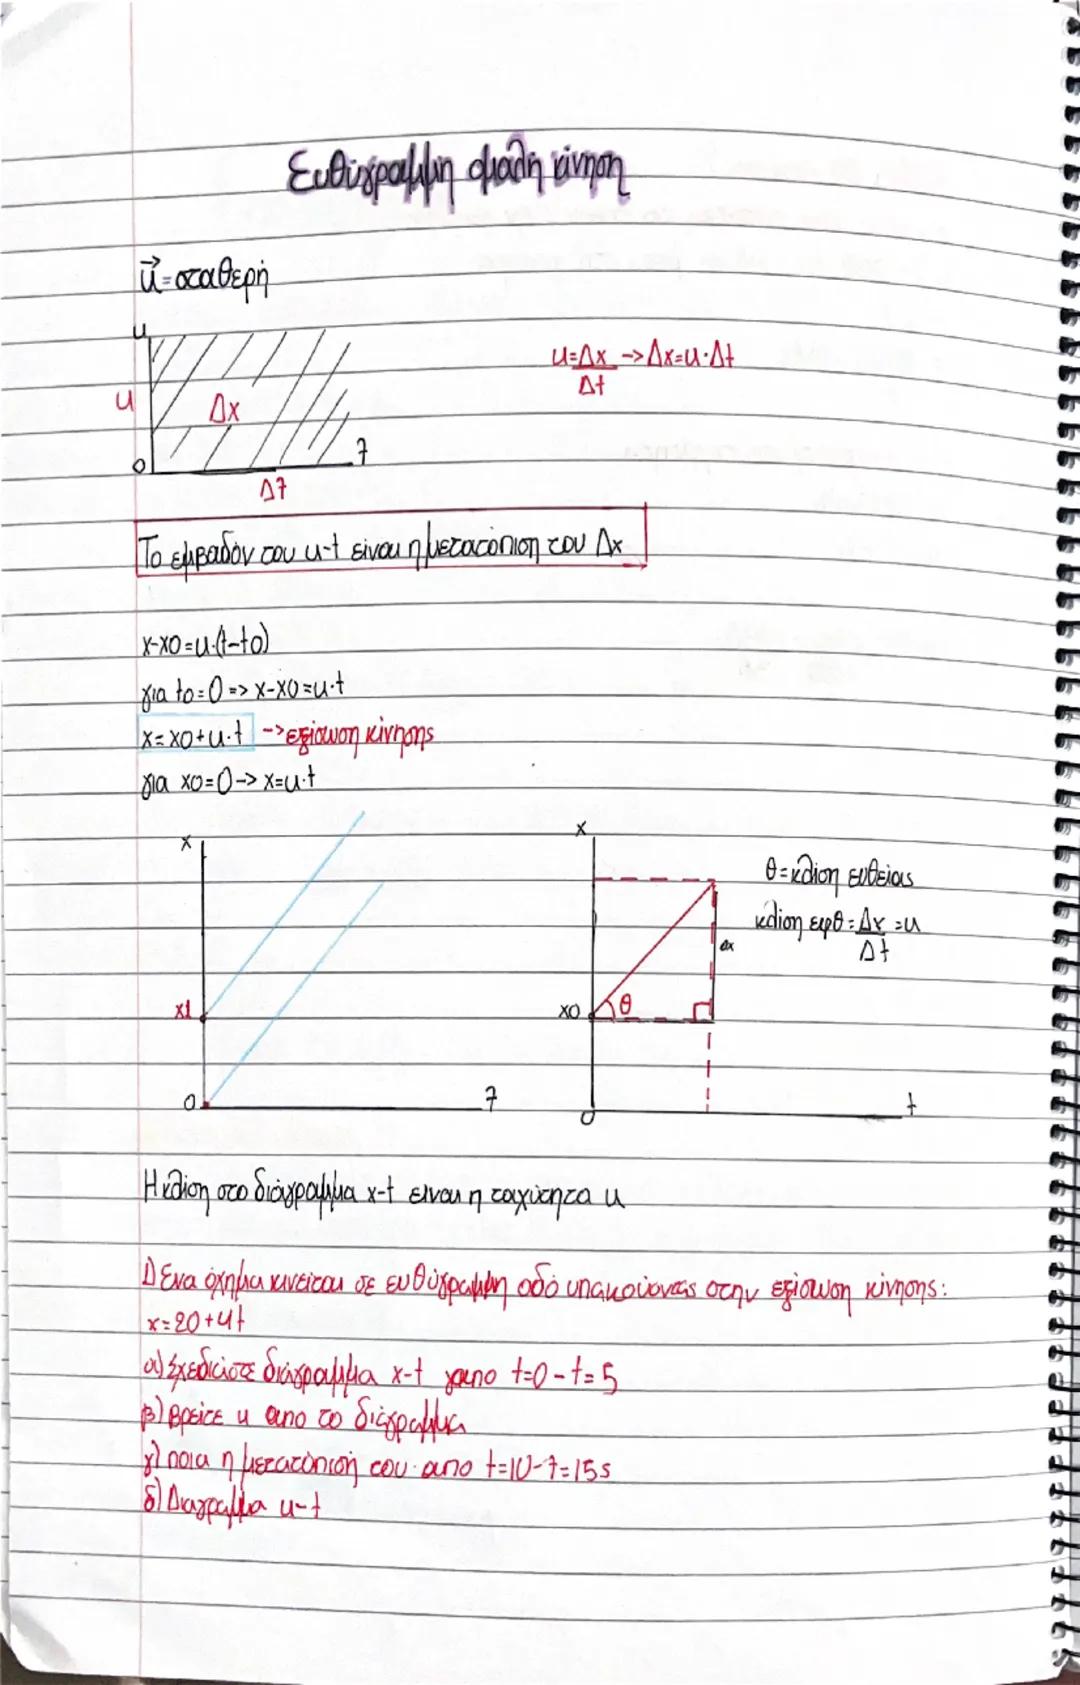 Ευθύγραμμη ομαλή κίνηση
u⃗=σταθερή
u
u
Δx
u=Δx/Δt -> Δx=u·Δt
0
t
Δt
Το εμβαδόν του u-t είναι η μετατόπιση του Δx
x-x0=u·(t-t0)
για t0=0 => x-x0=u·t
x=x0+u·t -> εξίσωση κίνησης
για x0=0-> x=u·t
x
x1
0
t
x
x0
θ
Δx
0
t
θ=κλίση ευθείας
κλίση εφθ=Δx/Δt=u
Η κλίση στο διάγραμμα x-t είναι η ταχύτητα u
1) Ενα όχημα κινείται σε ευθύγραμμη οδό υπακούοντας στην εξίσωση κίνησης:
x=20+4t
α) Σχεδιάστε διάγραμμα x-t για το t=0-t=5
β) Βρείτε u απο το διάγραμμα
γ) ποια η μετατόπιση του απο t=10-t=15s
δ) Διαγραμμα u-t